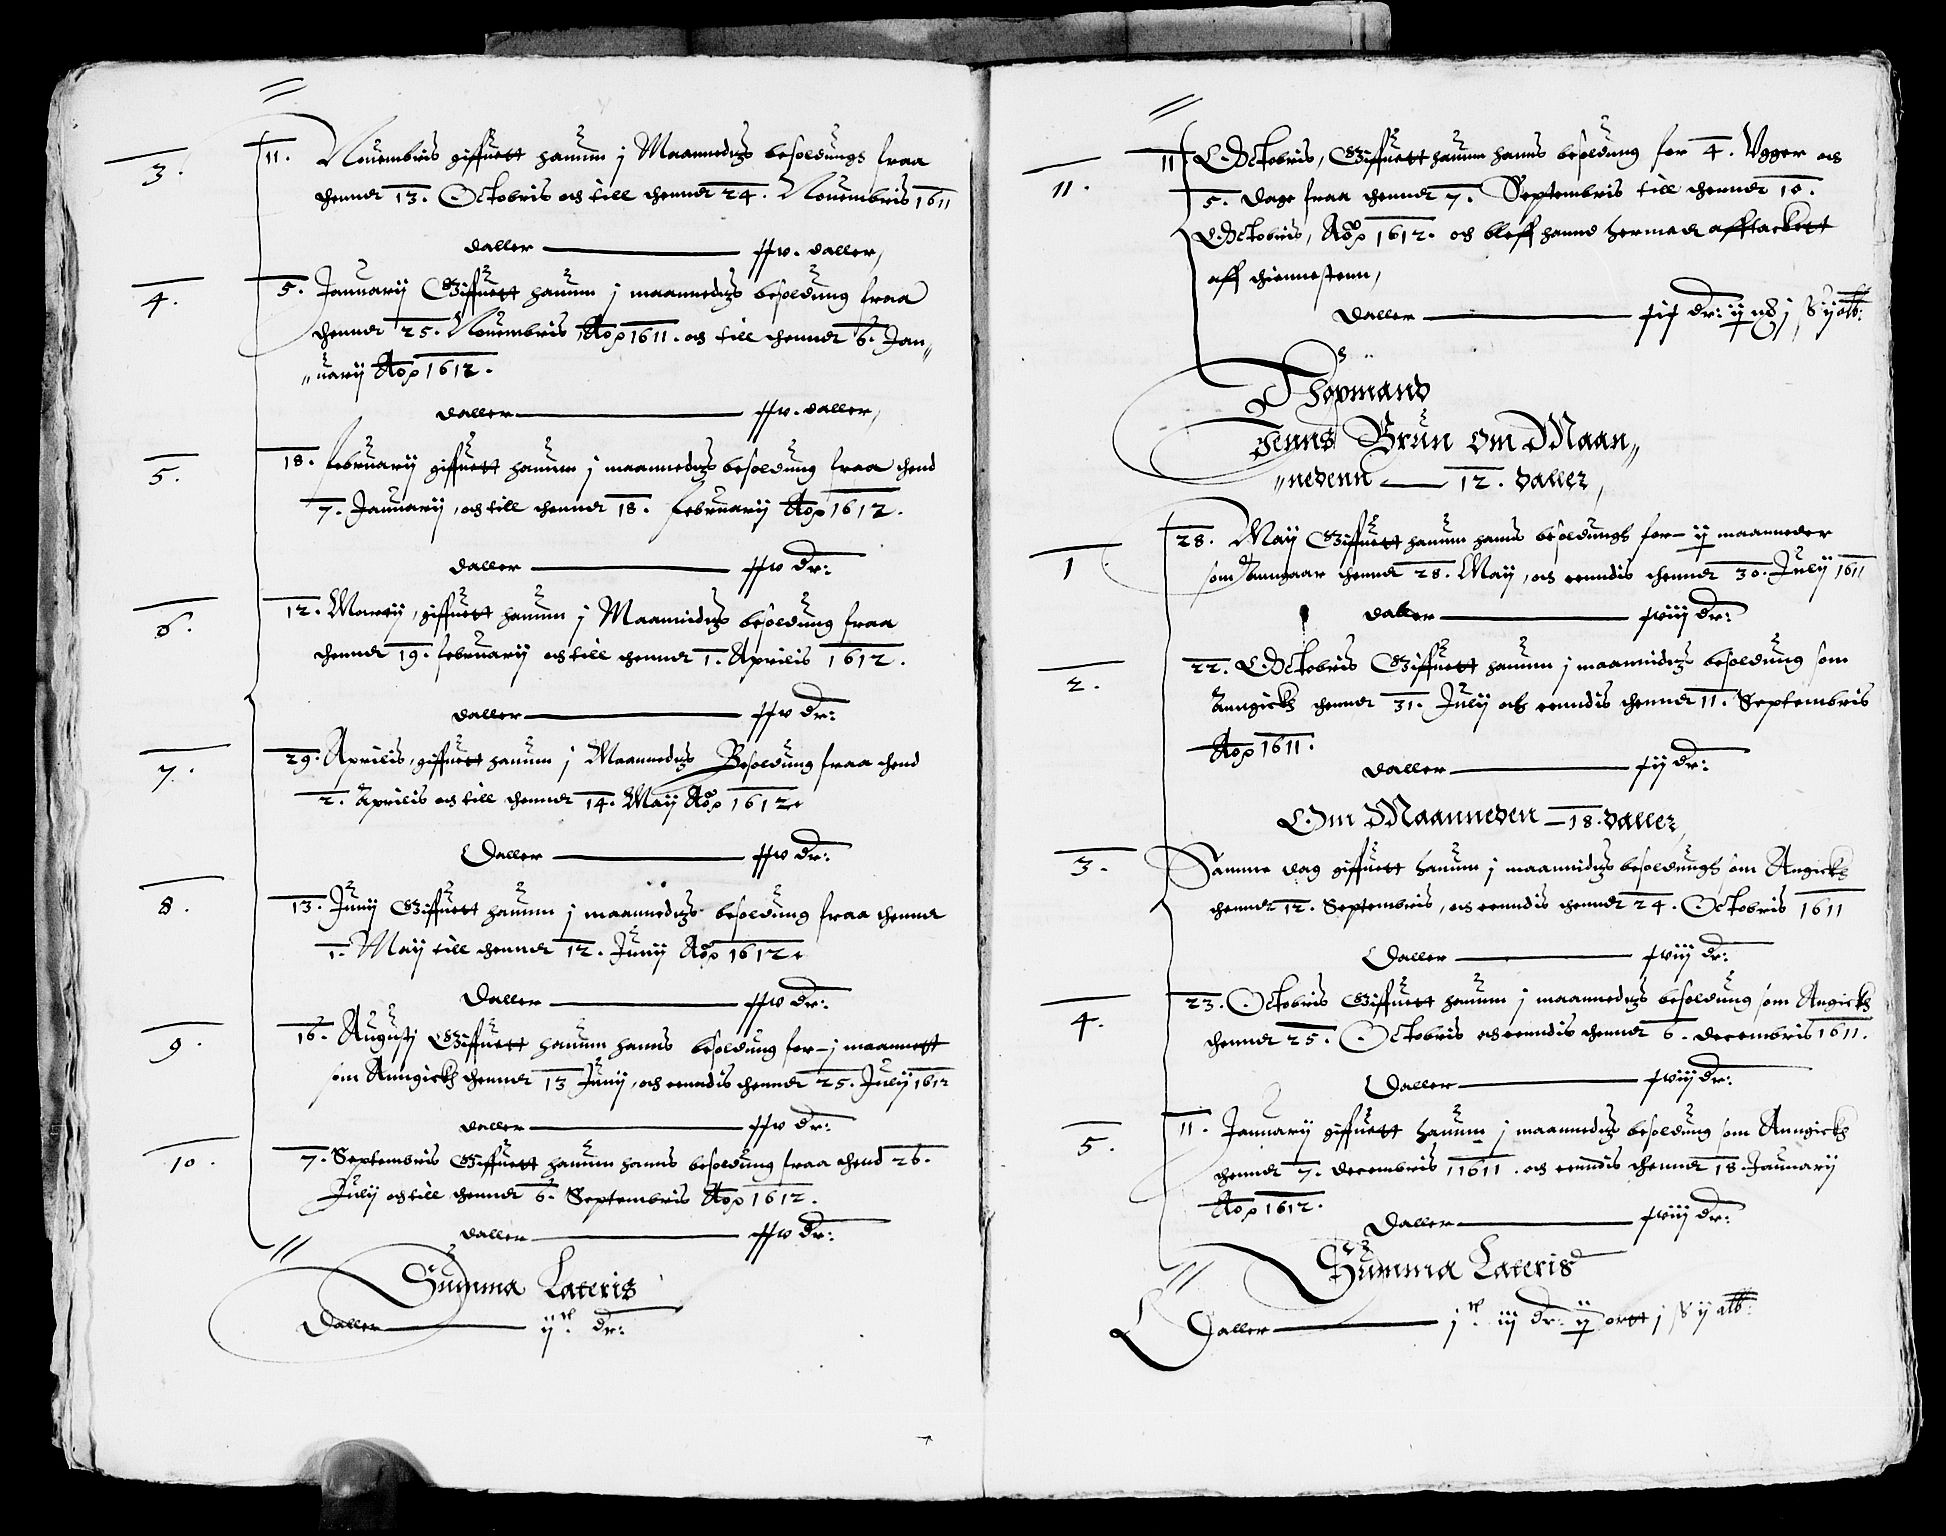 3.
11. Nouembris giffuett hanum j Maannedtzs besoldungs fraa
thennd 13. Octobris och till thennd 24. Nouembris 1611
daller — xxv. daller,
4.
5. Januarij Giffuett hanum j maannedtzs besoldung fraa
thennd 25. Nouembris Ao 1611. och till thennd 6. Jan„
„uarij Ao 1612.
daller — xxv. daller,
5.
18. februarij giffuett hanum j maannedtzs besoldung fraa thend
7. Januarij, och till thennd 18. februarij Ao 1612.
daller — xxv dr:
6.
12. Martij, giffuett hanum j Maannidtzs besoldung fraa
thennd 19. februarij och till thennd 1. Aprilis 1612.
daller — xxv dr:
7.
29. Aprilis, giffuett hanum j Maannedtzs Besoldung fraa thend
2. Aprilis och till thennd 14. Maij Ao 1612.
Daller — xxv dr:
8.
13. Junij Giffuett hanum j maannedtzs besoldung fraa thennd
1. Maij till thennd 12. Junij Ao 1612.
Daller — xxv dr:
9.
16. Augustj Giffuett hanum hanns besoldung for j maannett
som Anngick thennd 13 Junij, och eenndis thennd 25. Julij 1612
daller — xxv dr:
10.
7. Septembris Giffuett hanum hanns besoldung fraa thend 26.
Julij och till thennd 6. Septembris Ao 1612.
daller — xxv dr:
Summa Lateris
Daller — ijc dr:
11.
11 Octobris, Giffuett hanum hanns besoldung for 4. Vgger och
5. dage fraa thennd 7. Septembris till thennd 10.
Octobris, Ao 1612. och bleff hannd hermed afftackett
aff thiennesten,
Daller — xix dr: ij j ß ij alb:
Thopmand
Jenns Brun om Maan„
„nedenn — 12. daller,
1
28. Maij Giffuett hanum hanns besoldungs for ij maanneder
som Anngaar thennd 28. Maij, och eenndis thennd 30. Julij 1611
daller — xviij dr:
2.
22. Octobris Giffuett hanum j maannidtzs besoldung som
Anngick thennd 31. Julij och eenndis thennd 11. Septembris
Ao 1611.
daller — xij dr:
Om Maanneden — 18. daller,
3.
Samme dag giffuett hanum j maannidtzs besoldungs som Angick
thennd 12. Septembris, och eenndis thennd 24. Octobris 1611
Daller — xviij dr:
4.
23. Octobris Giffuett hanum j maannedtzs besoldung som Angick
thennd 25. Octobris och eenndis thennd 6. decembris 1611.
Daller — xviij dr:
5.
11. Januarij giffuett hanum j maannedtzs besoldung som Anngick
thennd 7. decembris 11611. och eenndis thennd 18. Januarij
Ao 1612.
Daller — xviij dr:
Summa Lateris
Daller — jc iij dr: ij ortt j ß ij alb: